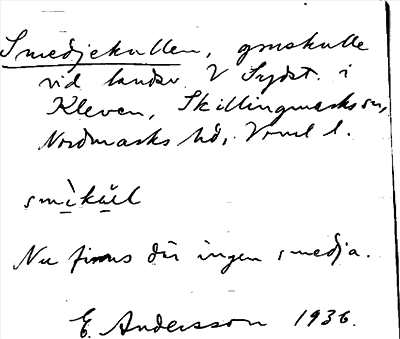 Smedjekullen, gruskulle
vid landsv. V Sydst. i
Kleven, Skillingmarks sn,
Nordmarks hd, Vrml l.
smìkul
Nu finns där ingen smedja.
E. Andersson 1936.